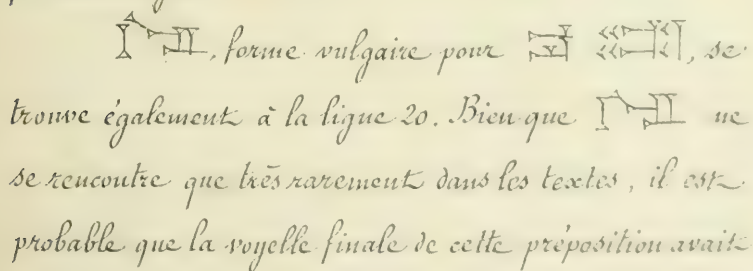 , forme vulgaire pour , se
trouve également à la ligne 20. Bien que ne
se rencontre que très rarement dans les textes, il est
probable que la voyelle finale de cette préposition avait